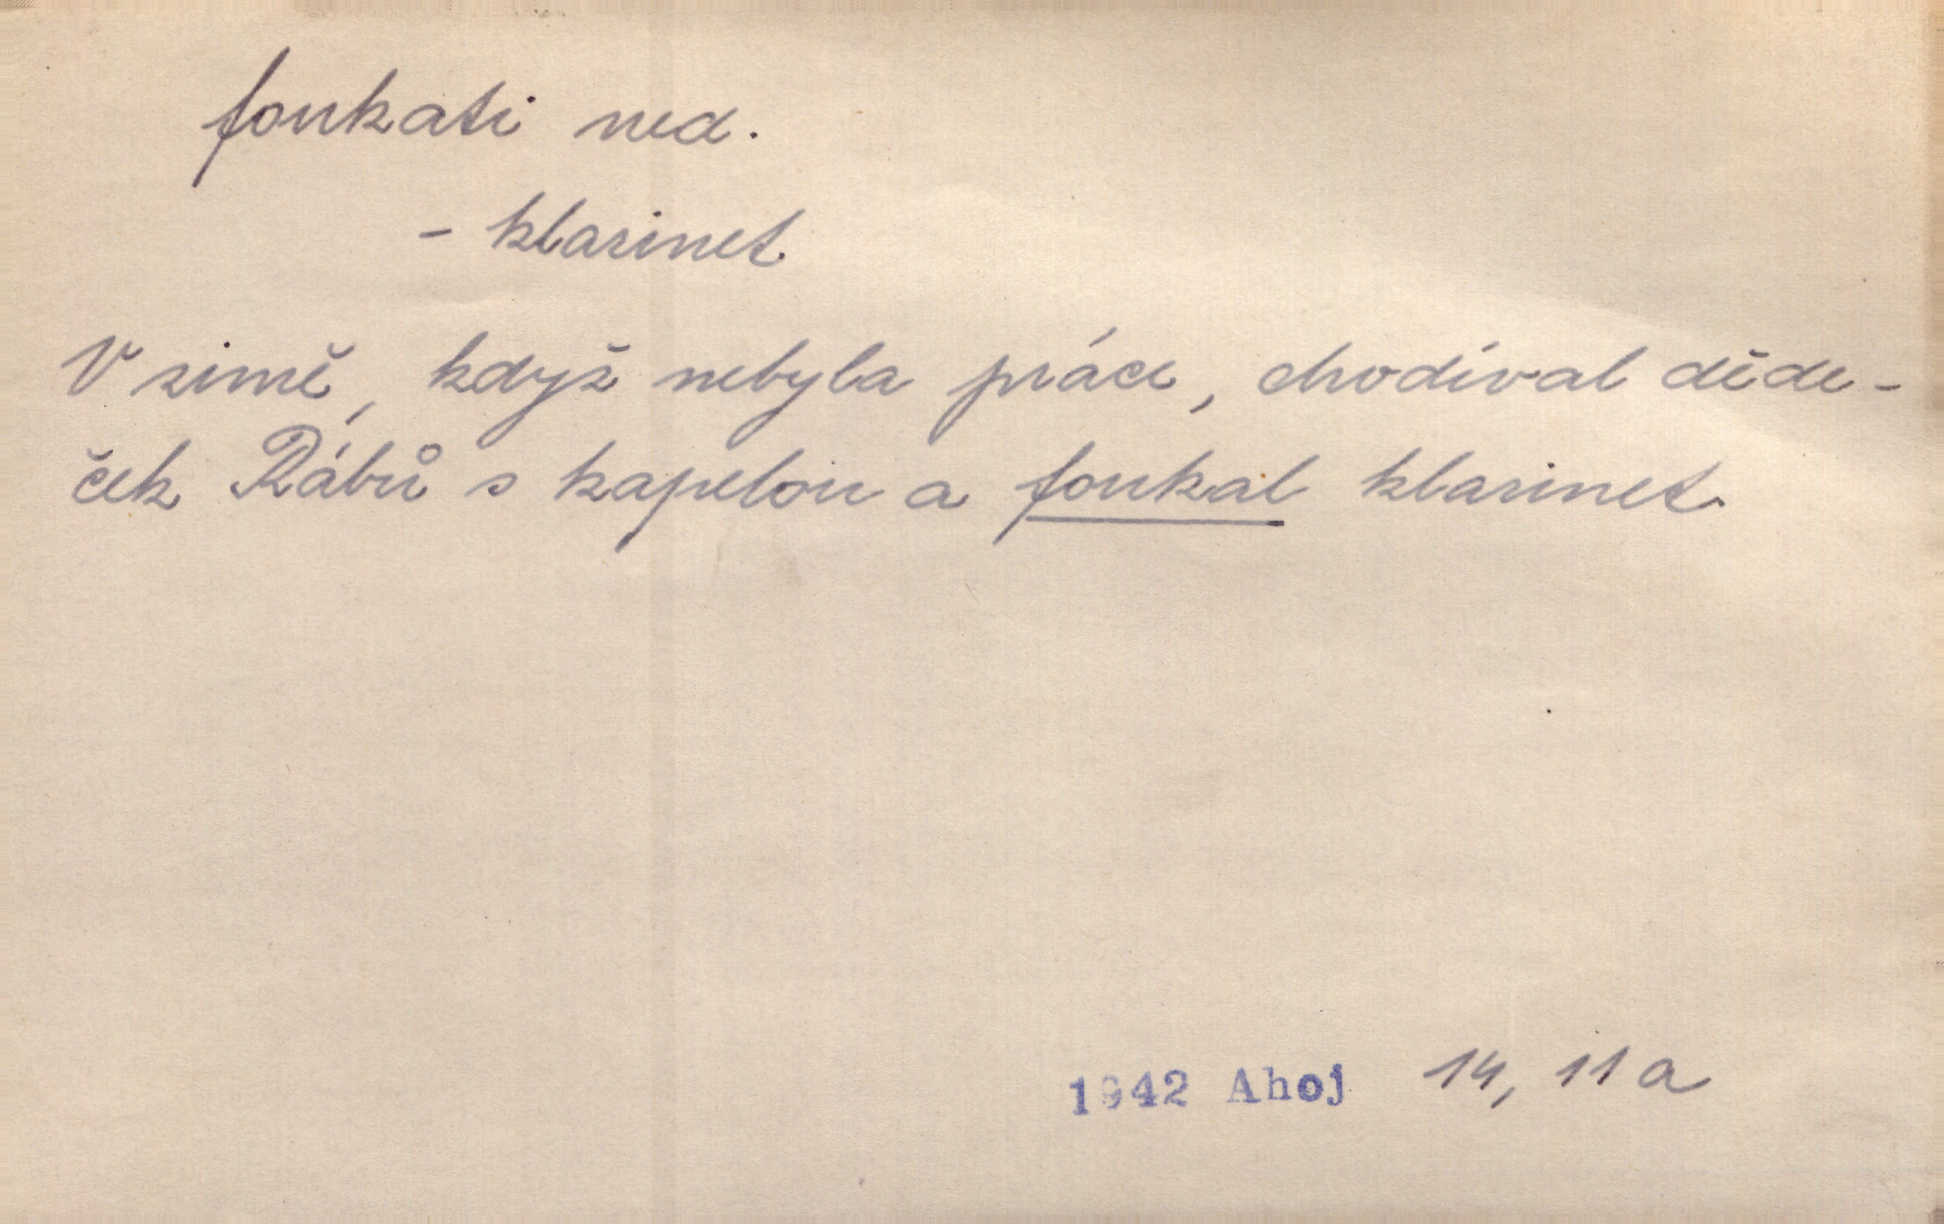 foukati ned.
- klarinet
V zimě, když nebyla práce, chodíval děde-
ček Rábů s kapelou a foukal klarinet.
1942 Ahoj 14, 11a